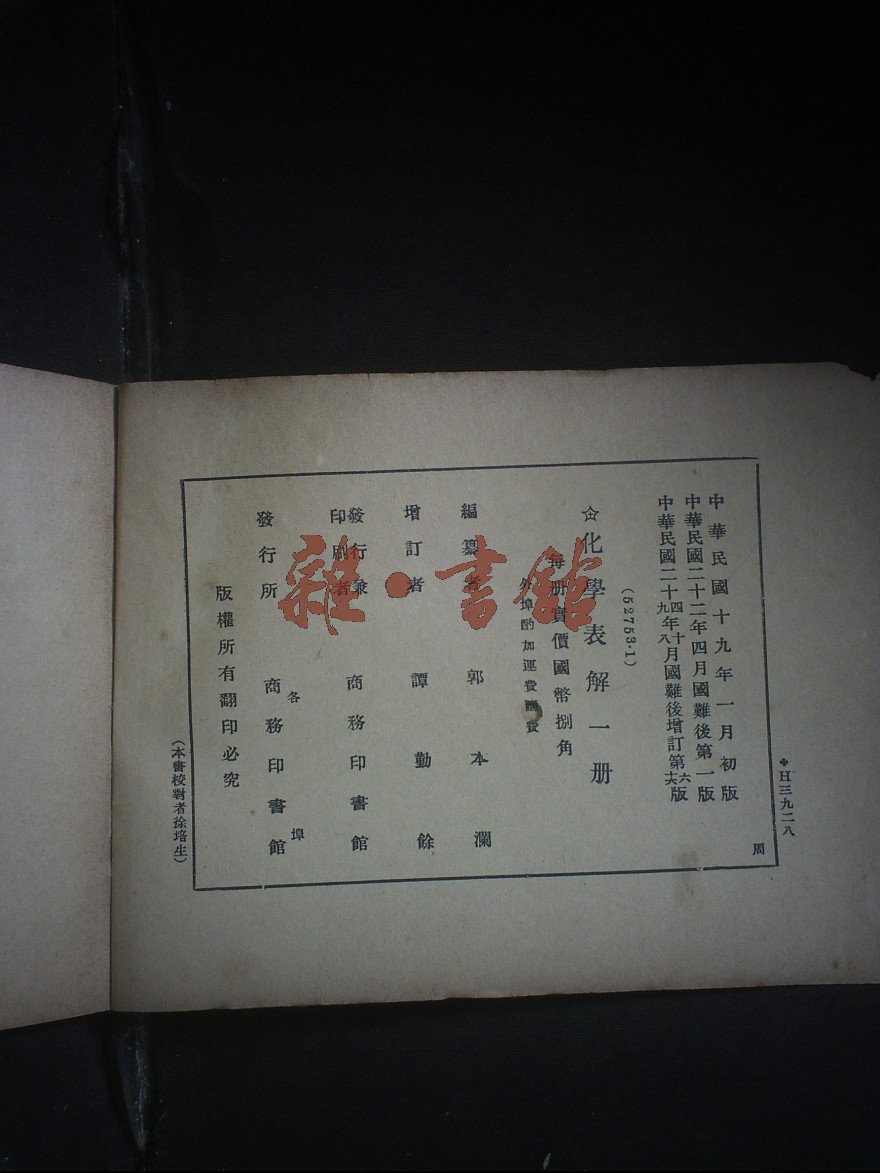 中華民國十九年一月初版
中華民國二十二年四月國難後第一版
中華民國二十四年十月國難後增訂第六版
九 八 十六
✩化學表解一册
(52753·1)
每册實價國幣捌角
外埠酌加運費匯費
編纂者 郭本瀾
增訂者 譚勤餘
發行兼印刷者 商務印書館
發行所 各埠 商務印書館
版權所有翻印必究
(本書校對者徐培生)
H三九二八
周
雜·書館